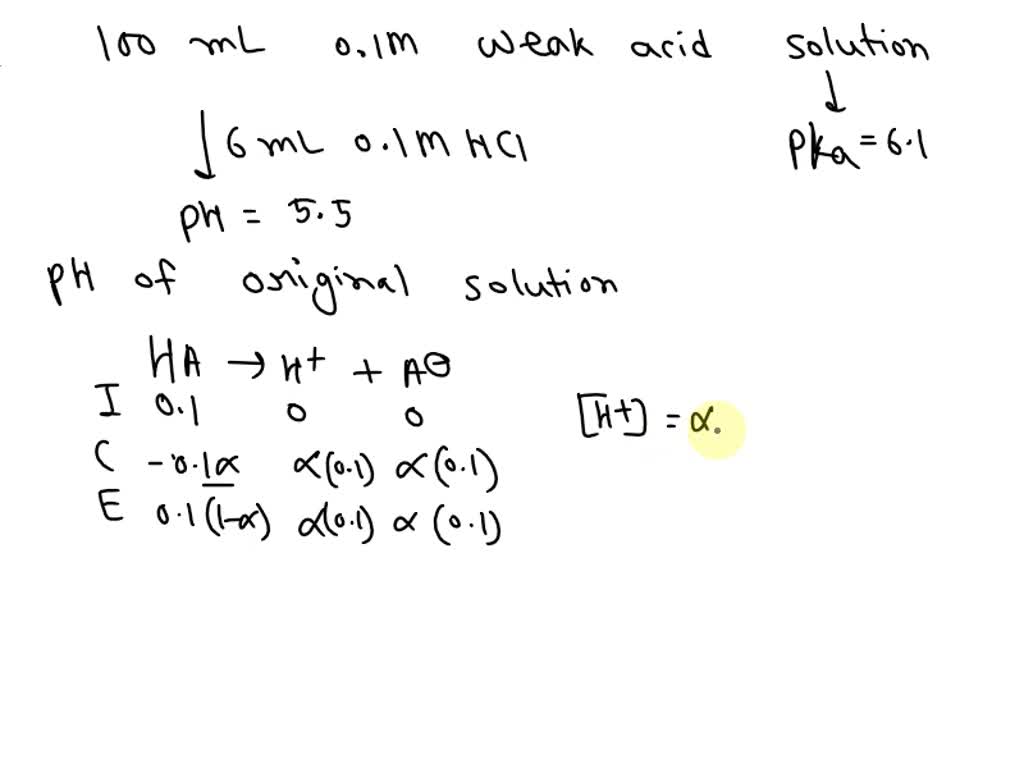 100 mL 0.1M weak acid solution
↓ 6 mL 0.1M HCl ↓ pka = 6.1
pH = 5.5
pH of original solution
HA → H+ + A⊖
I 0.1 0 0 [H+] = α.
C -0.1α α(0.1) α(0.1)
E 0.1(1-α) α(0.1) α(0.1)